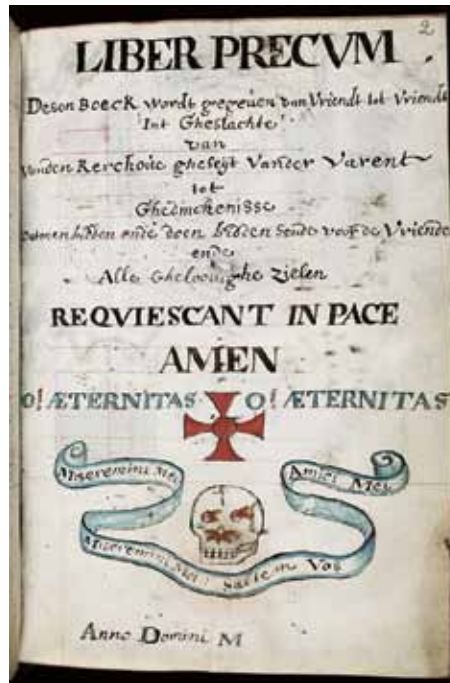 2
LIBER PRECVM
Desen Boeck wordt gegeuen van Vriendt tot Vriendt
Int Gheslachte
van
Vanden Kerchoue gheseyt Vander Varent
tot
Ghedinckenisse
bidden ende doen bidden voor de Vriende
ende
Alle Gheloouighe zielen
REQVIESCANT IN PACE
AMEN
O! ÆTERNITAS O! ÆTERNITAS
Miseremini Mei
Amici Mei
Miseremini Mei Saltem Vos
Anno Domini M